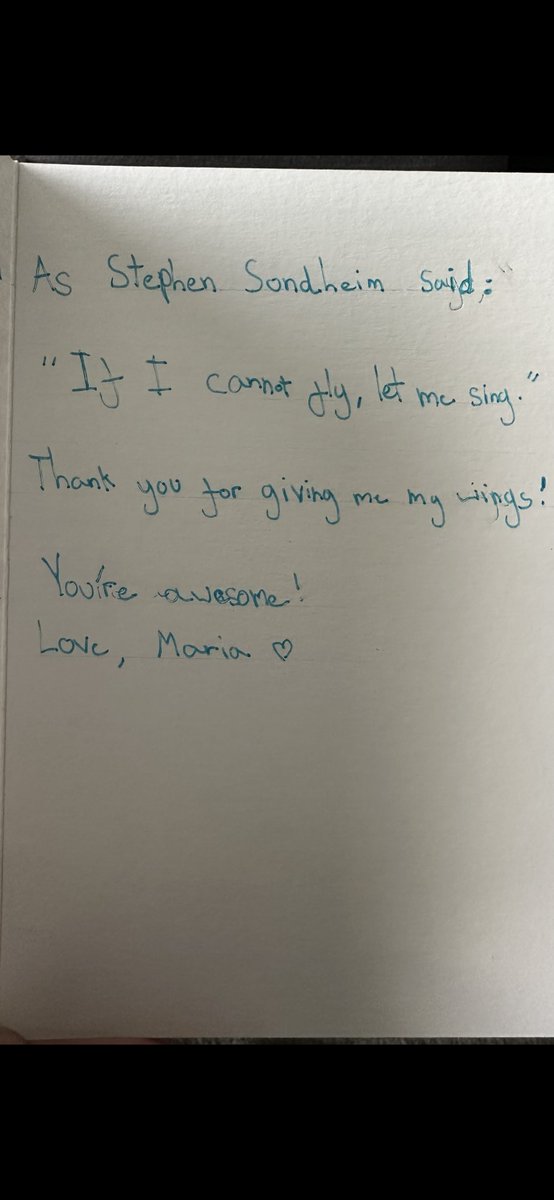 As Stephen Sondheim said:
"If I cannot fly, let me sing."
Thank you for giving me my wings!
You're awesome!
Love, Maria ♡